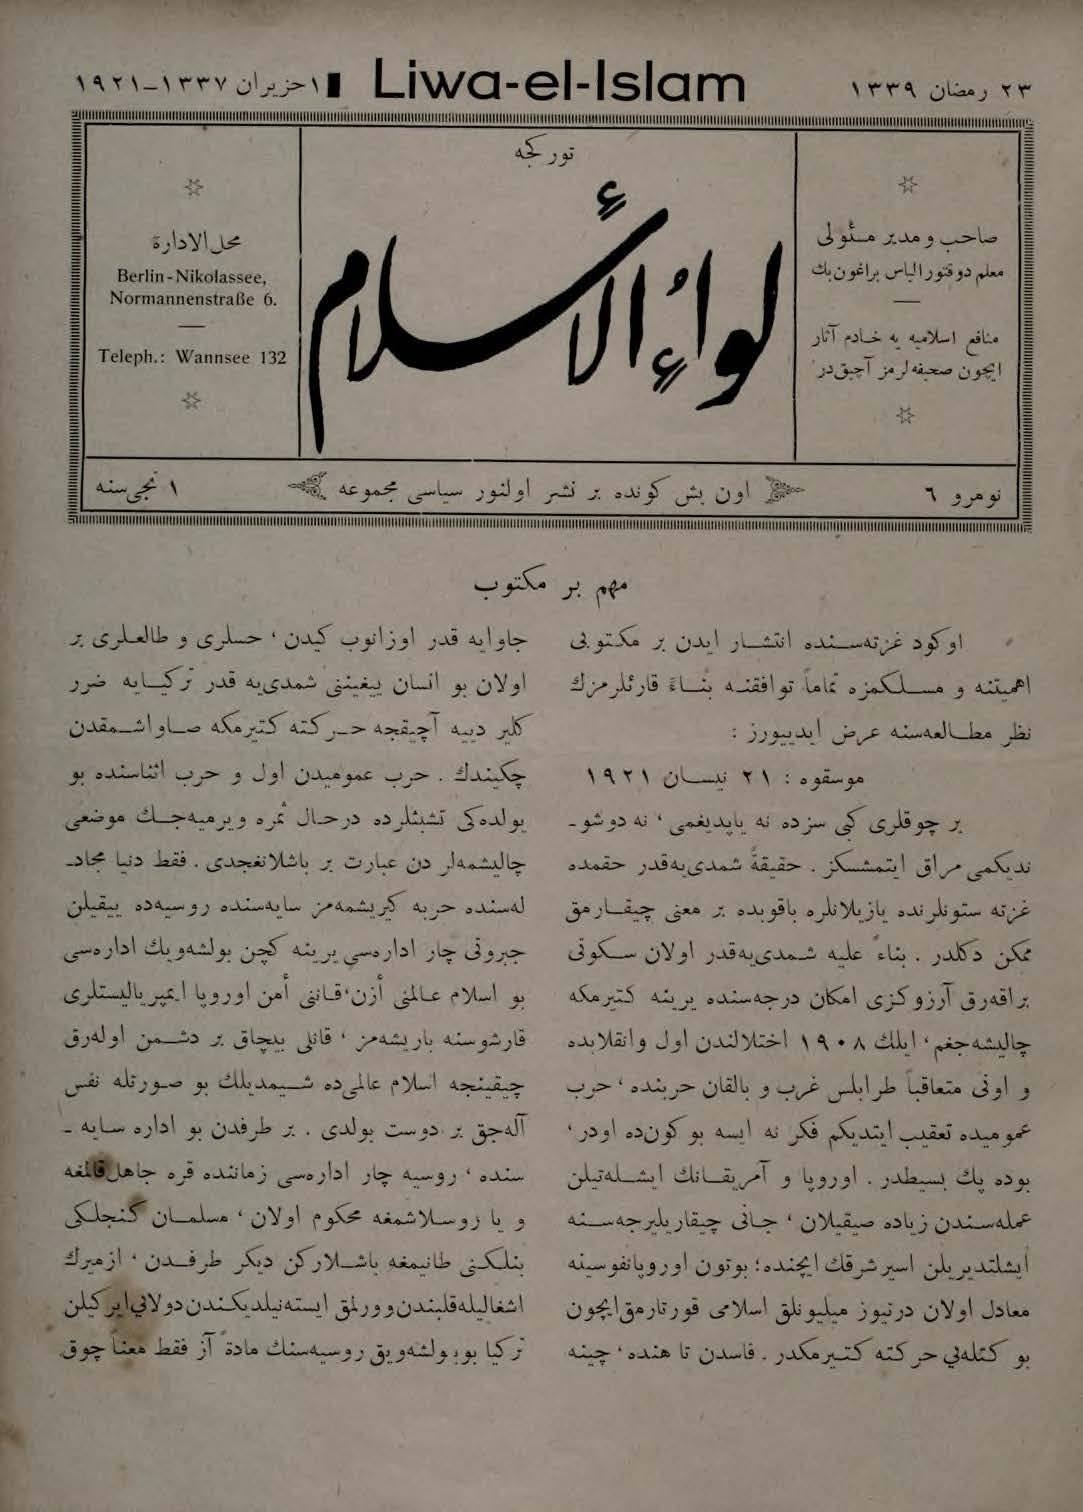 ٢٣ رمضان ١٣٣٩
Liwa-el-Islam
١ حزيران ١٣٣٧–١٩٢١
صاحب و مدير مسئولی
معلم دوقتور الياس براغون بك
منافع اسلاميه يه خادم آثار
ايچون صحيفه‌لرمز آچيق‌در
توركجه
لواء الأسلام
محل الادارة
Berlin-Nikolassee,
Normannenstraße 6.
Teleph.: Wannsee 132
نومرو ٦
اون بش كونده بر نشر اولنور سياسی مجموعه
١ نجی سنه
مهم بر مكتوب
اوكود غزته‌سنده انتشار ايدن بر مكتوبی
اهميتنه و مسلكمزه تماماً توافقنه بناءً قارئلرمزك
نظر مطالعه‌سنه عرض ايدييورز :
موسقوه : ٢١ نيسان ١٩٢١
بر چوقلری كبی سزده نه ياپديغمی ، نه دوشو-
نديكمی مراق ايتمشسكز . حقيقةً شمدی‌يه‌قدر حقمده
غزته ستونلرنده يازيلانلره باقوبده بر معنی چيقارمق
ممكن دكلدر . بناءً عليه شمدی‌يه‌قدر اولان سكوتی
براقه‌رق آرزوكزی امكان درجه‌سنده يرينه كتيرمكه
چاليشه‌جغم ، ايلك ١٩٠٨ اختلالندن اول وانقلابده
و اونی متعاقباً طرابلس غرب و بالقان حربنده ، حرب
عموميده تعقيب ايتديكم فكر نه ايسه بو كون‌ده اودر ،
بوده پك بسيطدر . اوروپا و آمريقانك ايشله‌تيلن
عمله‌سندن زياده صيقيلان ، جانی چيقاريليرجه‌سنه
ايشلتديريلن اسير شرقك ايچنده ؛ بوتون اوروپانفوسينه
معادل اولان درتيوز ميليونلق اسلامی قورتارمق‌ايچون
بو كتله‌یی حركته كتيرمكدر . فاسدن تا هنده ، چينه
جاوايه قدر اوزانوب كيدن ، حسلری و طالعلری بر
اولان بو انسان ييغيننی شمدی‌يه قدر تركيايه ضرر
كلير دييه آچيقجه حركته كتيرمكه صاواشمقدن
چكيندك . حرب عموميدن اول و حرب اثناسنده بو
يولده‌كی تشبثلرده درحال ثمره ويرميه‌جك موضعی
چاليشمه‌لر دن عبارت بر باشلانغجدی . فقط دنيا مجاد-
له‌سنده حربه كيريشمه‌مز سايه‌سنده روسيه‌ده ييقيلن
جبروتی چار اداره‌سی يرينه كچن بولشه‌ويك اداره‌سی
بو اسلام عالمنی أزن ، قاننی أمن اوروپا ايمپرياليستلری
قارشوسنه باريشه‌مز ، قانلی بيچاق بر دشمن اوله‌رق
چيقينجه اسلام عالمی‌ده شيمديلك بو صورتله نفس
آله‌جق بر دوست بولدی . بر طرفدن بو اداره سايه-
سنده ، روسيه چار اداره‌سی زماننده قره جاهل قالمغه
و يا روسلاشمغه محكوم اولان ، مسلمان كنجلكی
بنلكنی طانيمغه باشلاركن ديكر طرفدن ، ازميرك
اشغاليله‌قلبندن وورلمق ايسته‌نيلديكندن دولایی
تركيا بو بولشه‌ويق روسيه‌سنك مادةً آز فقط معناً چوق